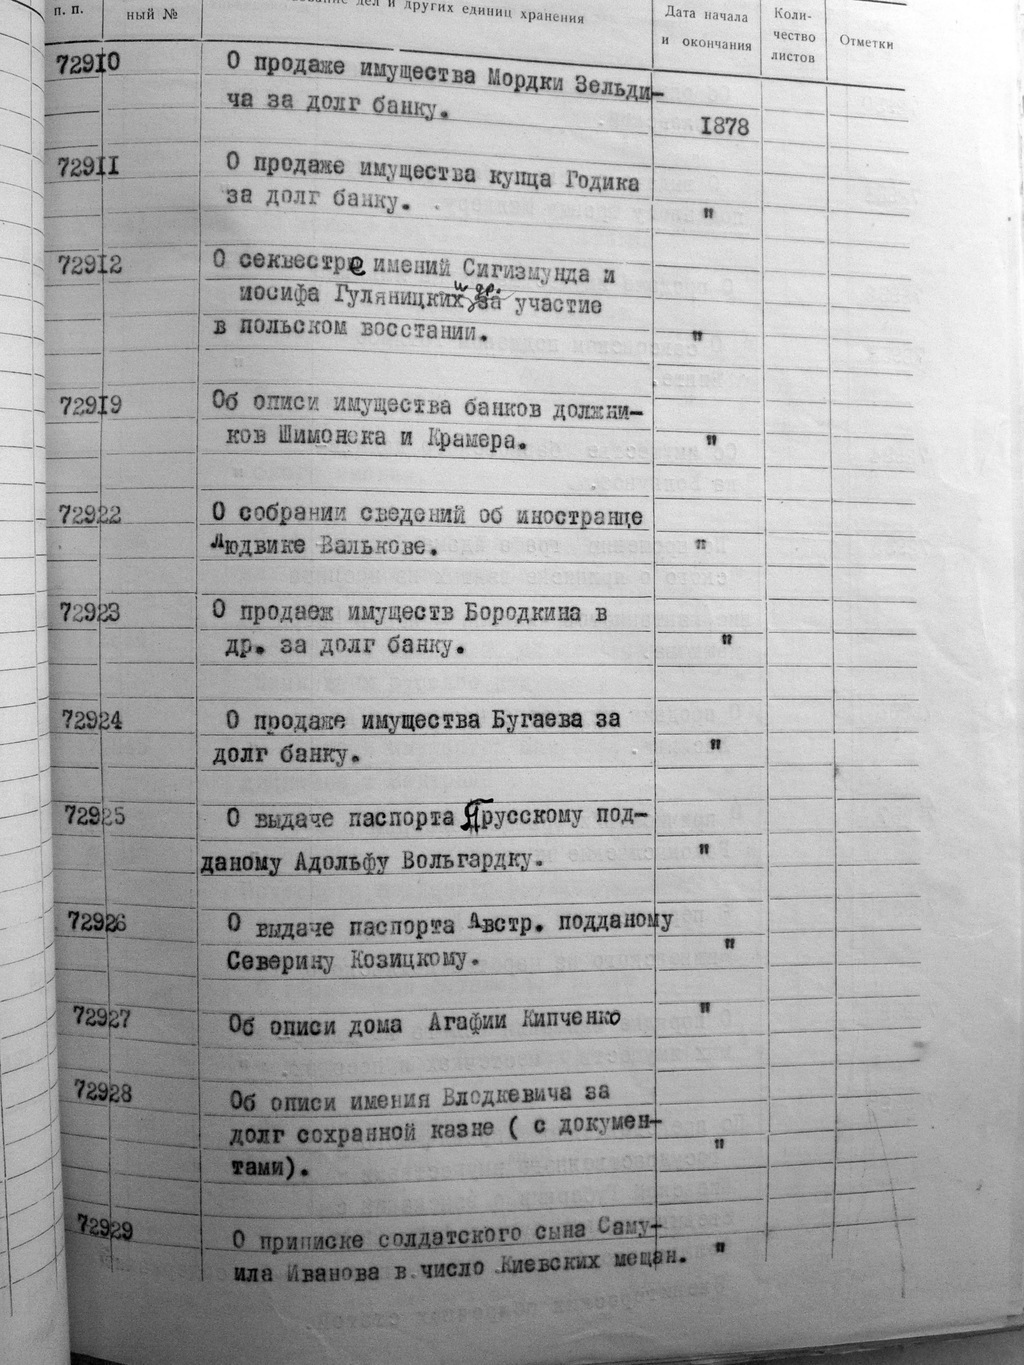 п. п.
ный №
дел и других единиц хранения
Дата начала
и окончания
Коли-
чество
листов
Отметки
72910
О продаже имущества Мордки Зельди-
ча за долг банку.
1878
72911
О продаже имущества купца Годика
за долг банку.
"
72912
О секвестре имений Сигизмунда и
и др.
иосифа Гуляницких за участие
в польском восстании.
"
72919
Об описи имущества банков должни-
ков Шимонска и Крамера.
"
72922
О собрании сведений об иностранце
Людвике Валькове.
"
72923
О продаеж имуществ Бородкина в
др. за долг банку.
"
72924
О продаже имущества Бугаева за
долг банку.
"
72925
О выдаче паспорта Прусскому под-
даному Адольфу Вольгардку.
"
72926
О выдаче паспорта Австр. подданому
Северину Козицкому.
"
72927
Об описи дома Агафии Кипченко
"
72928
Об описи имения Влодкевича за
долг сохранной казне ( с докумен-
тами).
"
72929
О приписке солдатского сына Саму-
ила Иванова в число Киевских мещан.
"